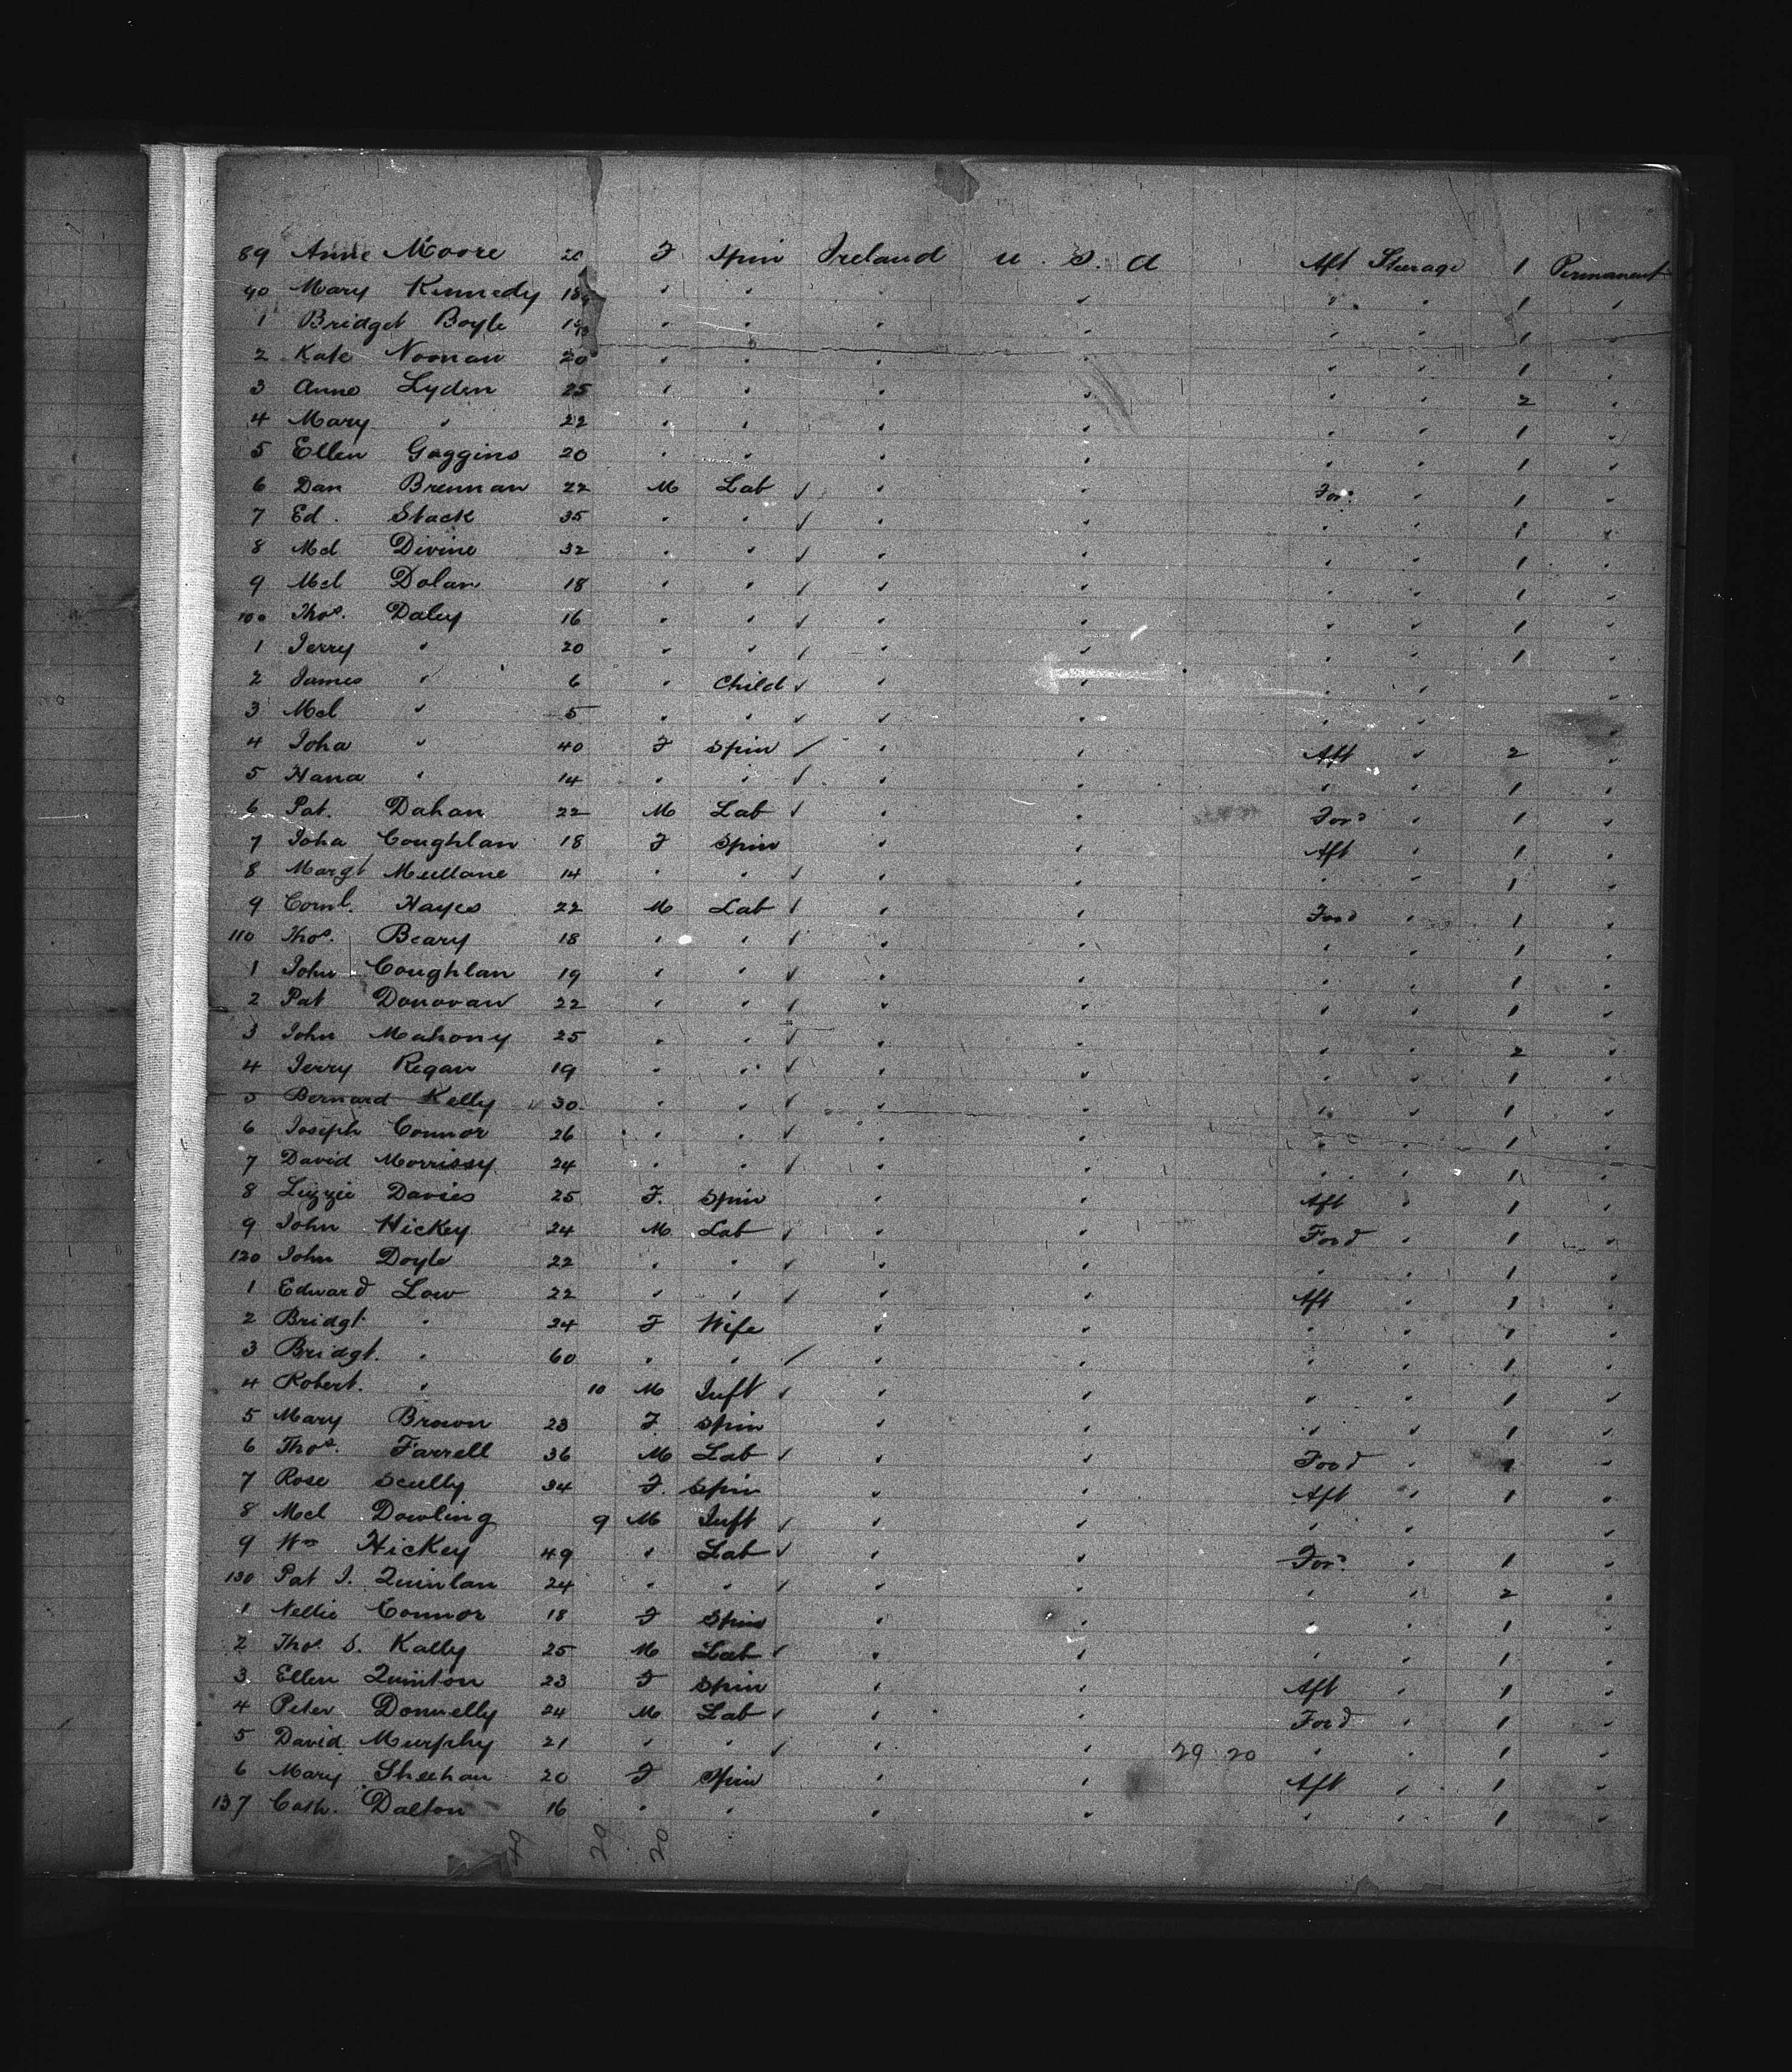 89 Annie Moore 20 F Spin Ireland U. S. A Aft Steerage 1 Permanent
90 Mary Kennedy 18 " " " " " " 1 "
1 Bridget Boyle " " " " " " 1 "
2 Kate Noonan 20 " " " " " " 1 "
3 Anne Lyden 25 " " " " " " 2 "
4 Mary " 22 " " " " " " 1 "
5 Ellen Goggins 20 " " " " " " 1 "
6 Dan Brennan 22 M Lab " " For: " 1 "
7 Ed. Stack 35 " " " " " " 1 "
8 Mcl Divine 32 " " " " " " 1 "
9 Mcl Dolan 18 " " " " " " 1 "
100 Thos. Daley 16 " " " " " " 1 "
1 Jerry " 20 " " " " " " 1 "
2 James " 6 " Child " " " " "
3 Mcl " 5 " " " " " " "
4 Joha " 40 F Spin " " Aft " 2 "
5 Hana " 14 " " " " " " 1 "
6 Pat. Dahan 22 M Lab " " Ford " 1 "
7 Joha Coughlan 18 F Spin " " Aft " 1 "
8 Margt Mullane 14 " " " " " " 1 "
9 Cornl. Hayes 22 M Lab " " Ford " 1 "
110 Thos. Beary 18 " " " " " " 1 "
1 John Coughlan 19 " " " " " " 1 "
2 Pat Donovan 22 " " " " " " 1 "
3 John Mahony 25 " " " " " " 2 "
4 Jerry Regan 19 " " " " " " 1 "
5 Bernard Kelly 30 " " " " " " 1 "
6 Joseph Connor 26 " " " " " " 1 "
7 David Morrissy 24 " " " " " " 1 "
8 Lizzie Davies 25 F. Spin " " Aft " 1 "
9 John Hickey 24 M Lab " " Ford " 1 "
120 John Doyle 22 " " " " " " 1 "
1 Edward Low 22 " " " " Aft " 1 "
2 Bridgt " 24 F Wife " " " " 1 "
3 Bridgt. " 60 " " " " " " 1 "
4 Robert. " 10 M Inft " " " " 1 "
5 Mary Brown 23 F Spin " " " " 1 "
6 Thos. Farrell 36 M Lab " " Ford " 1 "
7 Rose Scully 34 F. Spin " " Aft " 1 "
8 Mcl Dowling 9 M Inft " " " " "
9 Wm Hickey 49 " Lab " " Ford " 1 "
130 Pat J. Quinlan 24 " " " " " " 2 "
1 Nellie Connor 18 F Spin " " " " 1 "
2 Thos S. Kally 25 M Lab " " " " 1 "
3 Ellen Quinton 23 F Spin " " Aft " 1 "
4 Peter Donnelly 24 M Lab " " Ford " 1 "
5 David Murphy 21 " " " " 29 20 " " 1 "
6 Mary Sheehan 20 F Spin " " Aft " 1 "
137 Cath. Dalton 16 " " " " " " 1 "
29 29 20